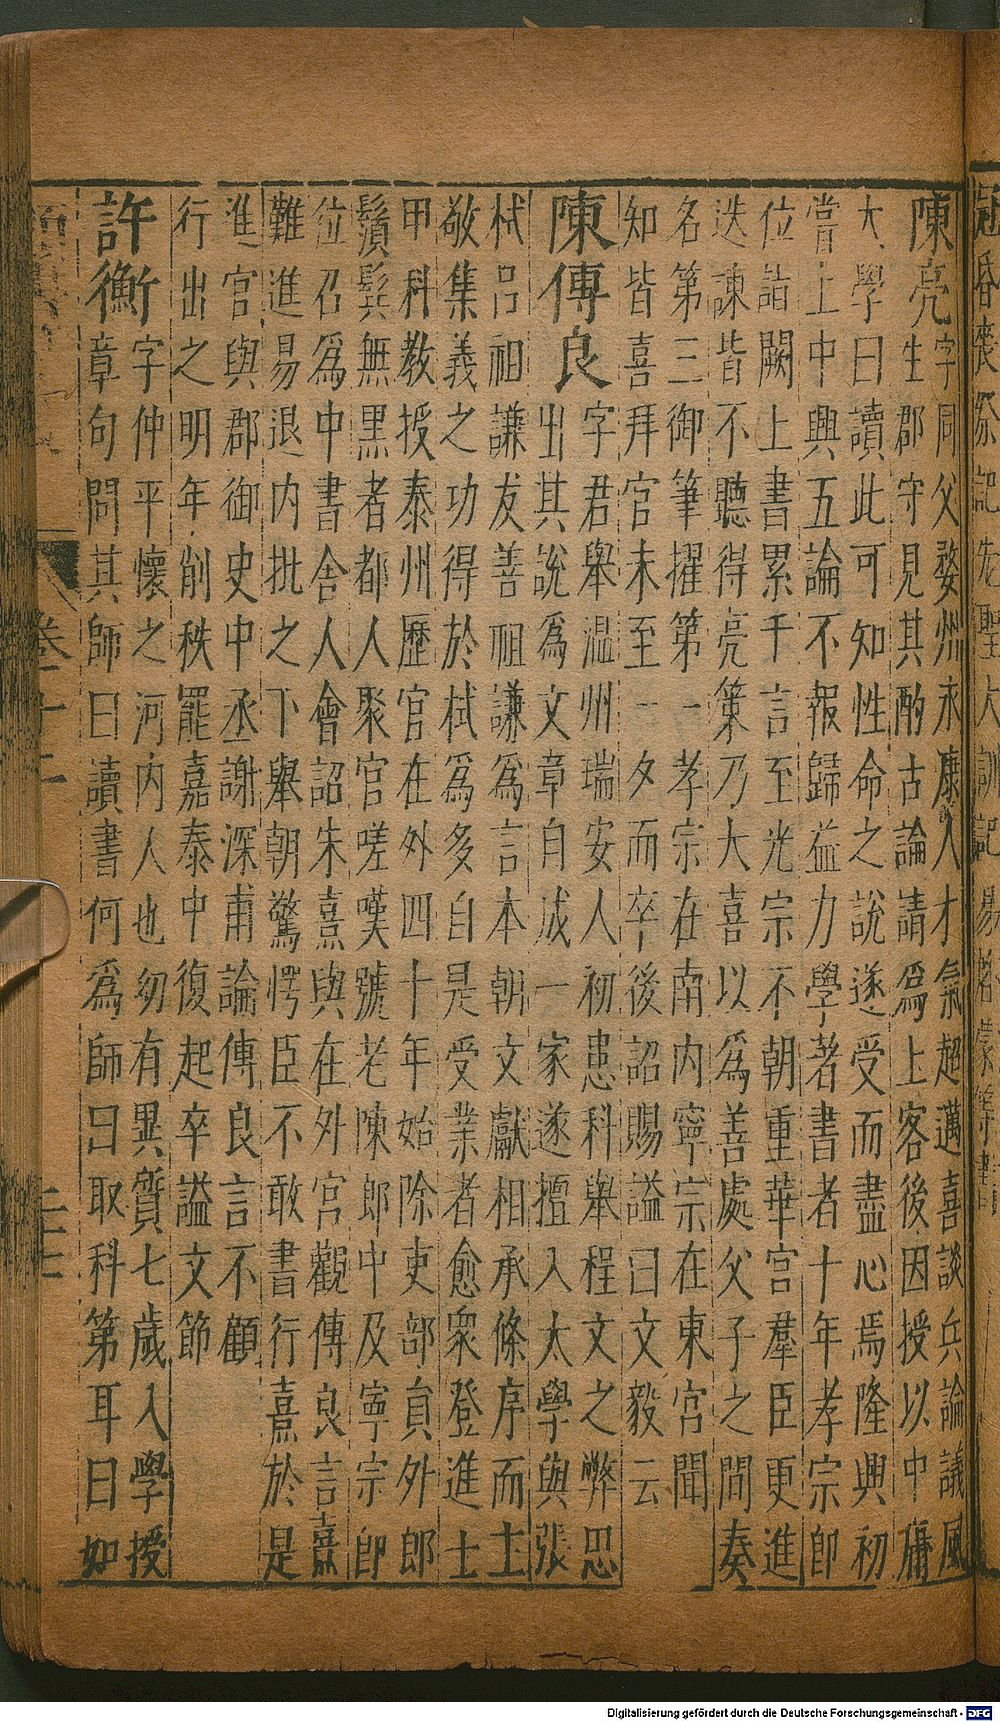 陳亮
字同父婺州永康人才氣超邁喜談兵論議風
生郡守見其酌古論請爲上客後因授以中庸
大學曰讀此可知性命之說遂受而盡心焉隆興初
嘗上中興五論不報歸益力學著書者十年孝宗卽
位詣闕上書累千言至光宗不朝重華宮羣臣更進
迭諫皆不聽得亮策乃大喜以爲善處父子之間奏
名第三御筆擢第一孝宗在南內寧宗在東宮聞
知皆喜拜官未至一夕而卒後詔賜謚曰文毅云
陳傳良
字君舉温州瑞安人初患科舉程文之弊思
出其說爲文章自成一家遂擅入太學與張
栻呂祖謙友善祖謙爲言本朝文獻相承條序而主
敬集義之功得於栻爲多自是受業者愈衆登進士
甲科教授泰州歷官在外四十年始除吏部員外郎
鬚髩無黑者都人聚官嗟嘆號老陳郎中及寧宗卽
位召爲中書舍人會詔朱熹與在外宮觀傳良言熹
難進易退内批之下舉朝驚愕臣不敢書行熹於是
進官與郡御史中丞謝深甫論傳良言不顧
行出之明年削秩罷嘉泰中復起卒謚文節
許衡
字仲平懷之河内人也幼有異質七歲入學授
章句問其師曰讀書何爲師曰取科第耳曰如
Digitalisierung gefördert durch die Deutsche Forschungsgemeinschaft - DFG